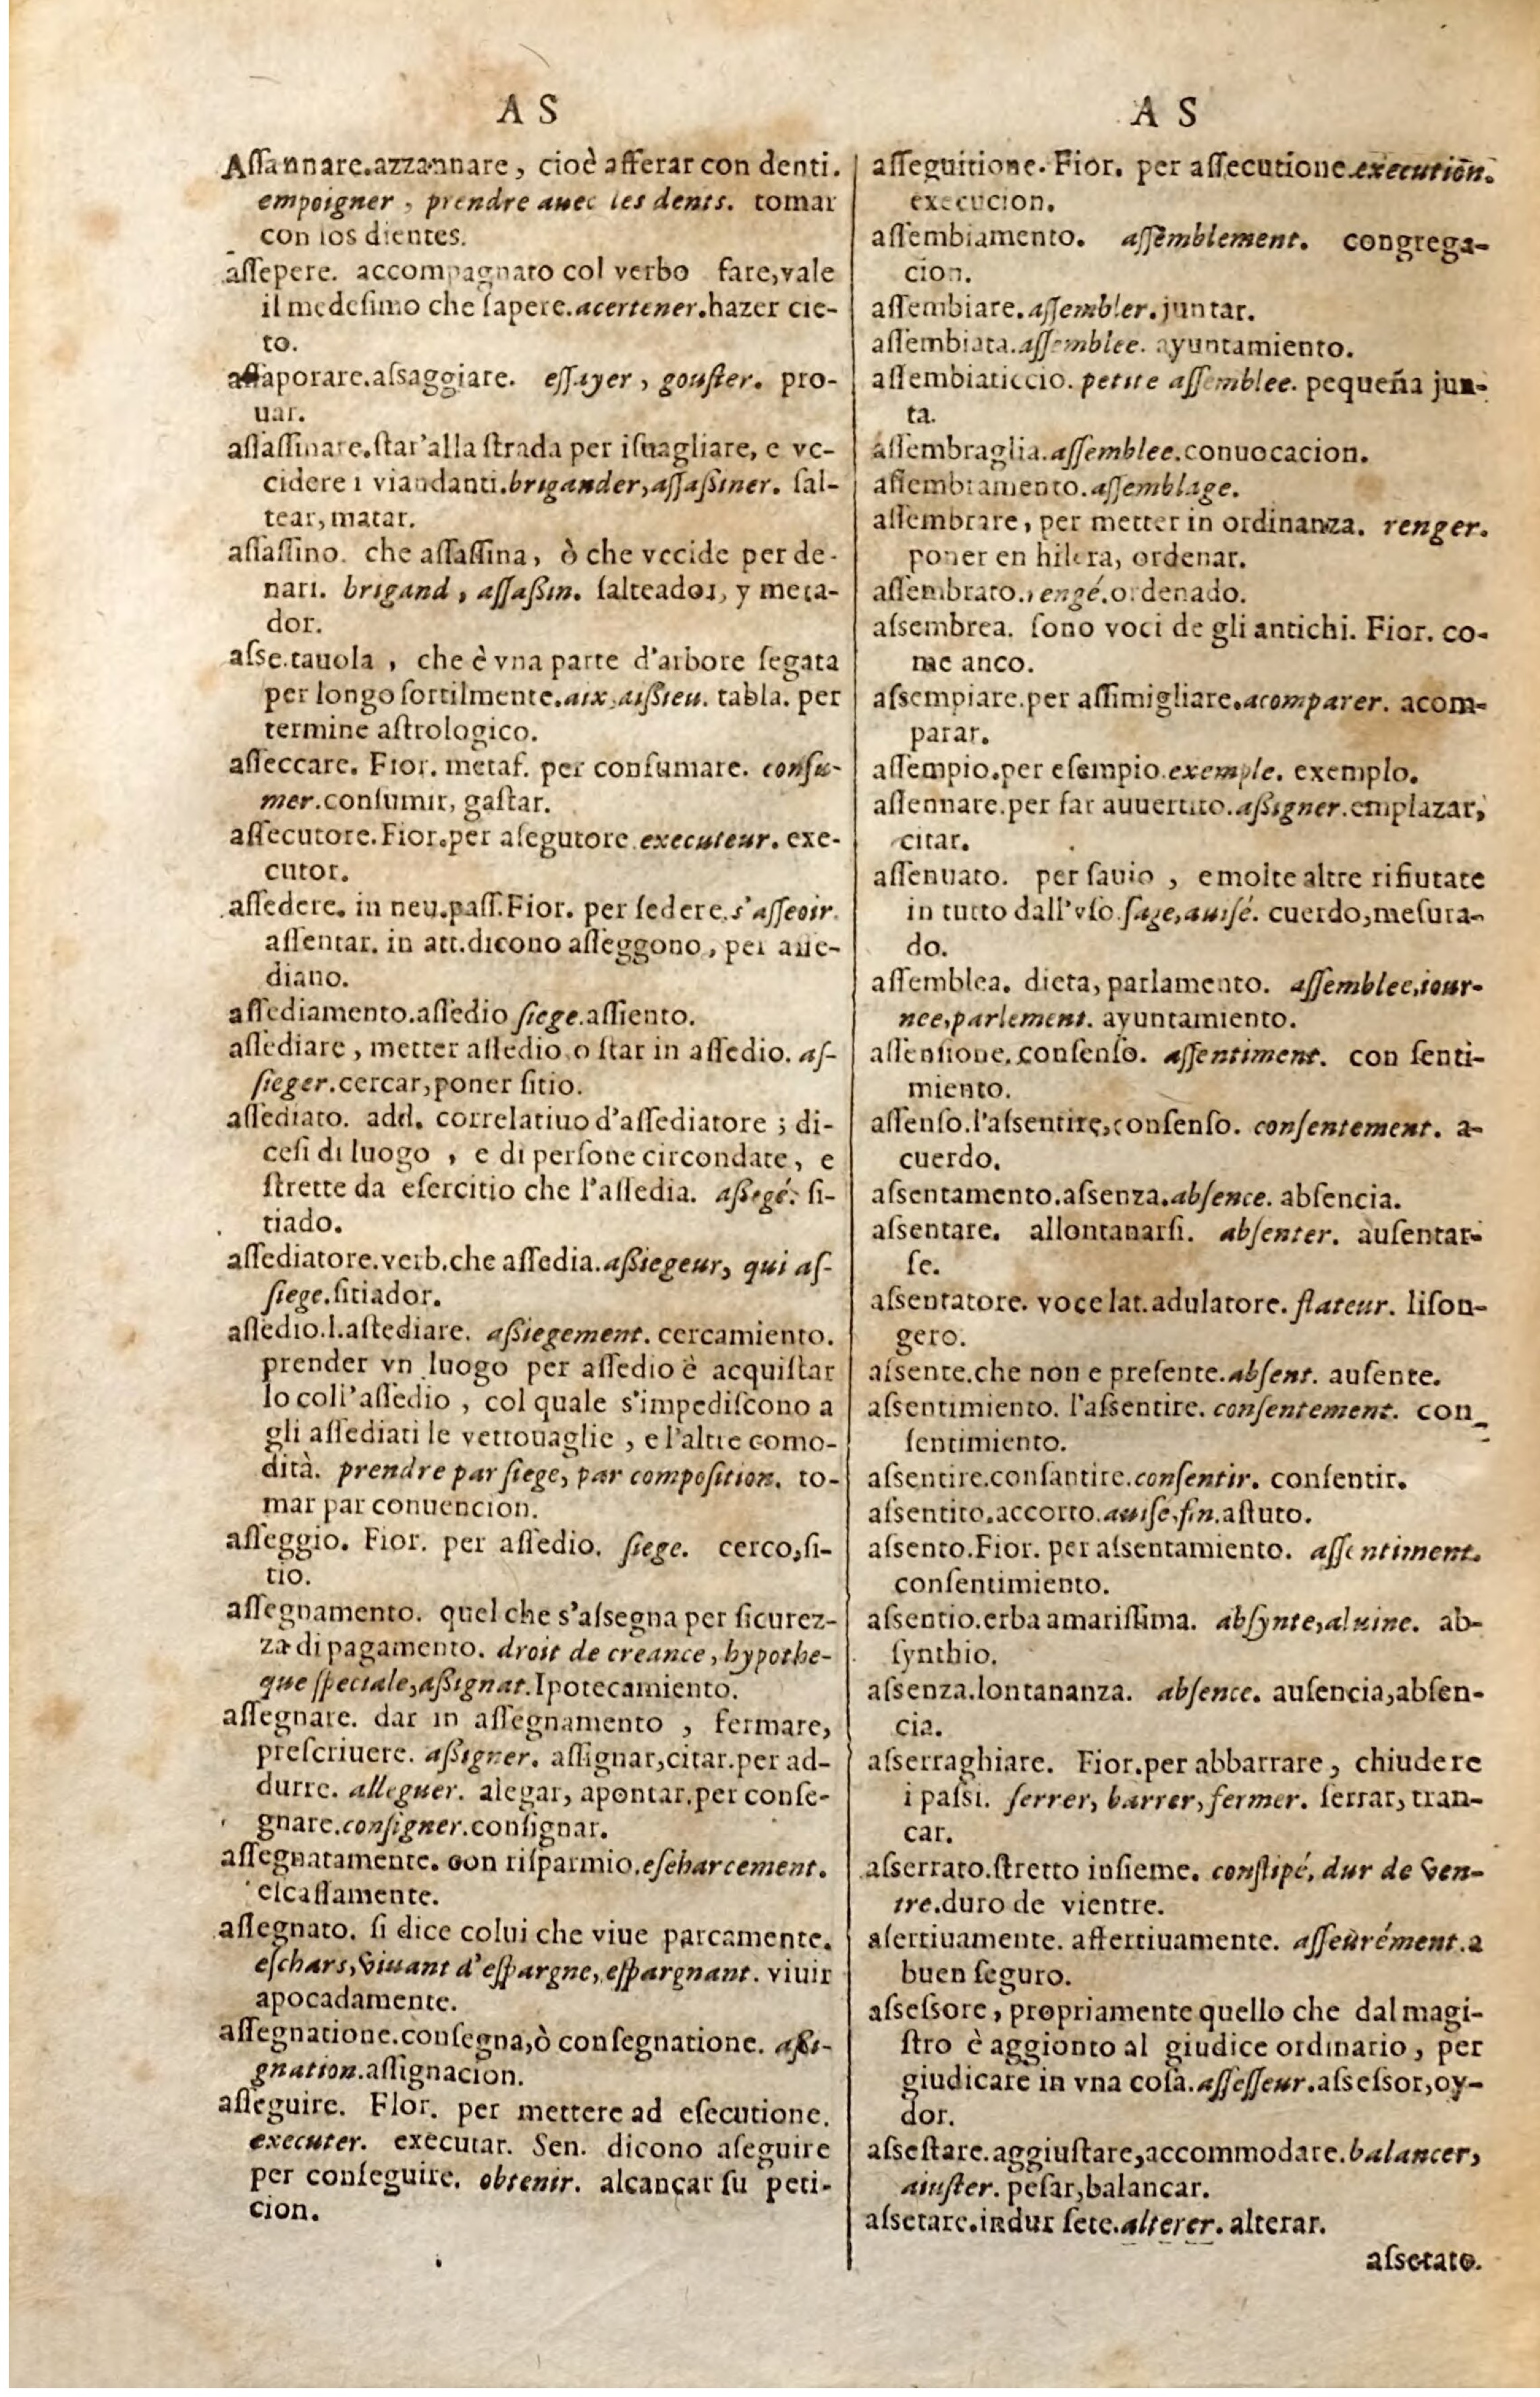 A S
Aſſannare.azzannare, cioè afferar con denti.
empoigner, prendre auec les dents. tomar
con los dientes.
aſſepere. accompagnato col verbo fare,vale
il medeſimo che ſapere.acertener.hazer cie-
to.
aſſaporare.aſsaggiare. eſſayer, gouſter. pro-
uar.
aſſaſſinare.ſtar'alla ſtrada per iſuagliare, e vc-
cidere i viandanti.brigander,aſſaßiner. ſal-
tear,matar.
aſſaſſino. che aſſaſſina, ò che vccide per de-
nari. brigand, aſſaßin. ſalteador, y mata-
dor.
aſse.tauola, che è vna parte d'arbore ſegata
per longo ſottilmente.aix,aißieu. tabla. per
termine aſtrologico.
aſſeccare. Fior. metaf. per conſumare. conſu-
mer.conſumir, gaſtar.
aſſecutore.Fior.per aſegutore.executeur. exe-
cutor.
aſſedere. in neu.paſſ.Fior. per ſedere.s'aſſeoir.
aſſentar. in att.dicono aſſeggono, per aſſe-
diano.
aſſediamento.aſſedio ſiege.aſſiento.
aſſediare, metter aſſedio,o ſtar in aſſedio. aſ-
ſieger.cercar,poner ſitio.
aſſediato. add. correlatiuo d'aſſediatore; di-
ceſi di luogo, e di perſone circondate, e
ſtrette da eſercitio che l'aſſedia. aßiegé. ſi-
tiado.
aſſediatore.verb.che aſſedia.aßiegeur, qui aſ-
ſiege.ſitiador.
aſſedio.l.aſtediare. aßiegement. cercamiento.
prender vn luogo per aſſedio è acquiſtar
lo coll'aſſedio, col quale s'impediſcono a
gli aſſediati le vettouaglie, e l'altre como-
dità. prendre par ſiege, par compoſition. to-
mar par conuencion.
aſſeggio. Fior. per aſſedio. ſiege. cerco,ſi-
tio.
aſſegnamento. quel che s'aſsegna per ſicurez-
za di pagamento. droit de creance, hypothe-
que ſpeciale,aßignat.Ipotecamiento.
aſſegnare. dar in aſſegnamento, fermare,
preſcriuere. aßigner. aſſignar,citar.per ad-
durre. alleguer. alegar, apontar.per conſe-
gnare.conſigner.conſignar.
aſſegnatamente. con riſparmio.eſeharcement.
eſcaſſamente.
aſſegnato. ſi dice colui che viue parcamente.
eſchars,viuant d'eſpargne,eſpargnant. viuir
apocadamente.
aſſegnatione.conſegna,ò conſegnatione. aßi-
gnation.aſſignacion.
aſſeguire. Flor. per mettere ad eſecutione.
executer. executar. Sen. dicono aſeguire
per conſeguire. obtenir. alcançar ſu peti-
cion.
A S
aſſeguitione. Fior. per aſſecutione.execution.
execucion.
aſſembiamento. aſſemblement. congrega-
cion.
aſſembiare.aſſembler.juntar.
aſſembiata.aſſemblee. ayuntamiento.
aſſembiaticcio. petite aſſemblee. pequeña jun-
ta.
aſſembraglia.aſſemblee.conuocacion.
aſſembramento.aſſemblage.
aſſembrare, per metter in ordinanza. renger.
poner en hilera, ordenar.
aſſembrato.rengé.ordenado.
aſsembrea. ſono voci de gli antichi. Fior. co-
me anco.
aſsempiare.per aſſimigliare.acomparer. acom-
parar.
aſſempio.per eſempio.exemple. exemplo.
aſſennare.per far auuertito.aßigner.emplazar,
citar.
aſſennato. per ſauio, e molte altre rifiutate
in tutto dall'vſo.ſage,auiſé. cuerdo,meſura-
do.
aſſemblea. dieta, parlamento. aſſemblee,iour-
nee,parlement. ayuntamiento.
aſſenſione.conſenſo. aſſentiment. con ſenti-
miento.
aſſenſo.l'aſsentire,conſenſo. conſentement. a-
cuerdo.
aſsentamento.aſsenza.abſence. abſencia.
aſsentare. allontanarſi. abſenter. auſentar-
ſe.
aſsentatore. voce lat.adulatore. flateur. liſon-
gero.
aſsente.che non e preſente.abſent. auſente.
aſsentimiento. l'aſsentire. conſentement. con_
ſentimiento.
aſsentire.conſantire.conſentir. conſentir.
aſsentito.accorto.auiſé,fin.aſtuto.
aſsento.Fior. per aſsentamiento. aſſentiment.
conſentimiento.
aſsentio.erba amariſſima. abſynte,aluine. ab-
ſynthio.
aſsenza.lontananza. abſence. auſencia,abſen-
cia.
aſserraghiare. Fior.per abbarrare, chiudere
i paſsi. ſerrer, barrer,fermer. ſerrar,tran-
car.
aſserrato.ſtretto inſieme. conſtipé, dur de ven-
tre.duro de vientre.
aſertiuamente. aſſertiuamente. aſſeürément.a
buen ſeguro.
aſseſsore, propriamente quello che dal magi-
ſtro è aggionto al giudice ordinario, per
giudicare in vna coſa.aſſeſſeur.aſseſsor,oy-
dor.
aſseſtare.aggiuſtare,accommodare.balancer,
aiuſter. peſar,balancar.
aſsetare.indur ſete.alterer. alterar.
aſsetato.